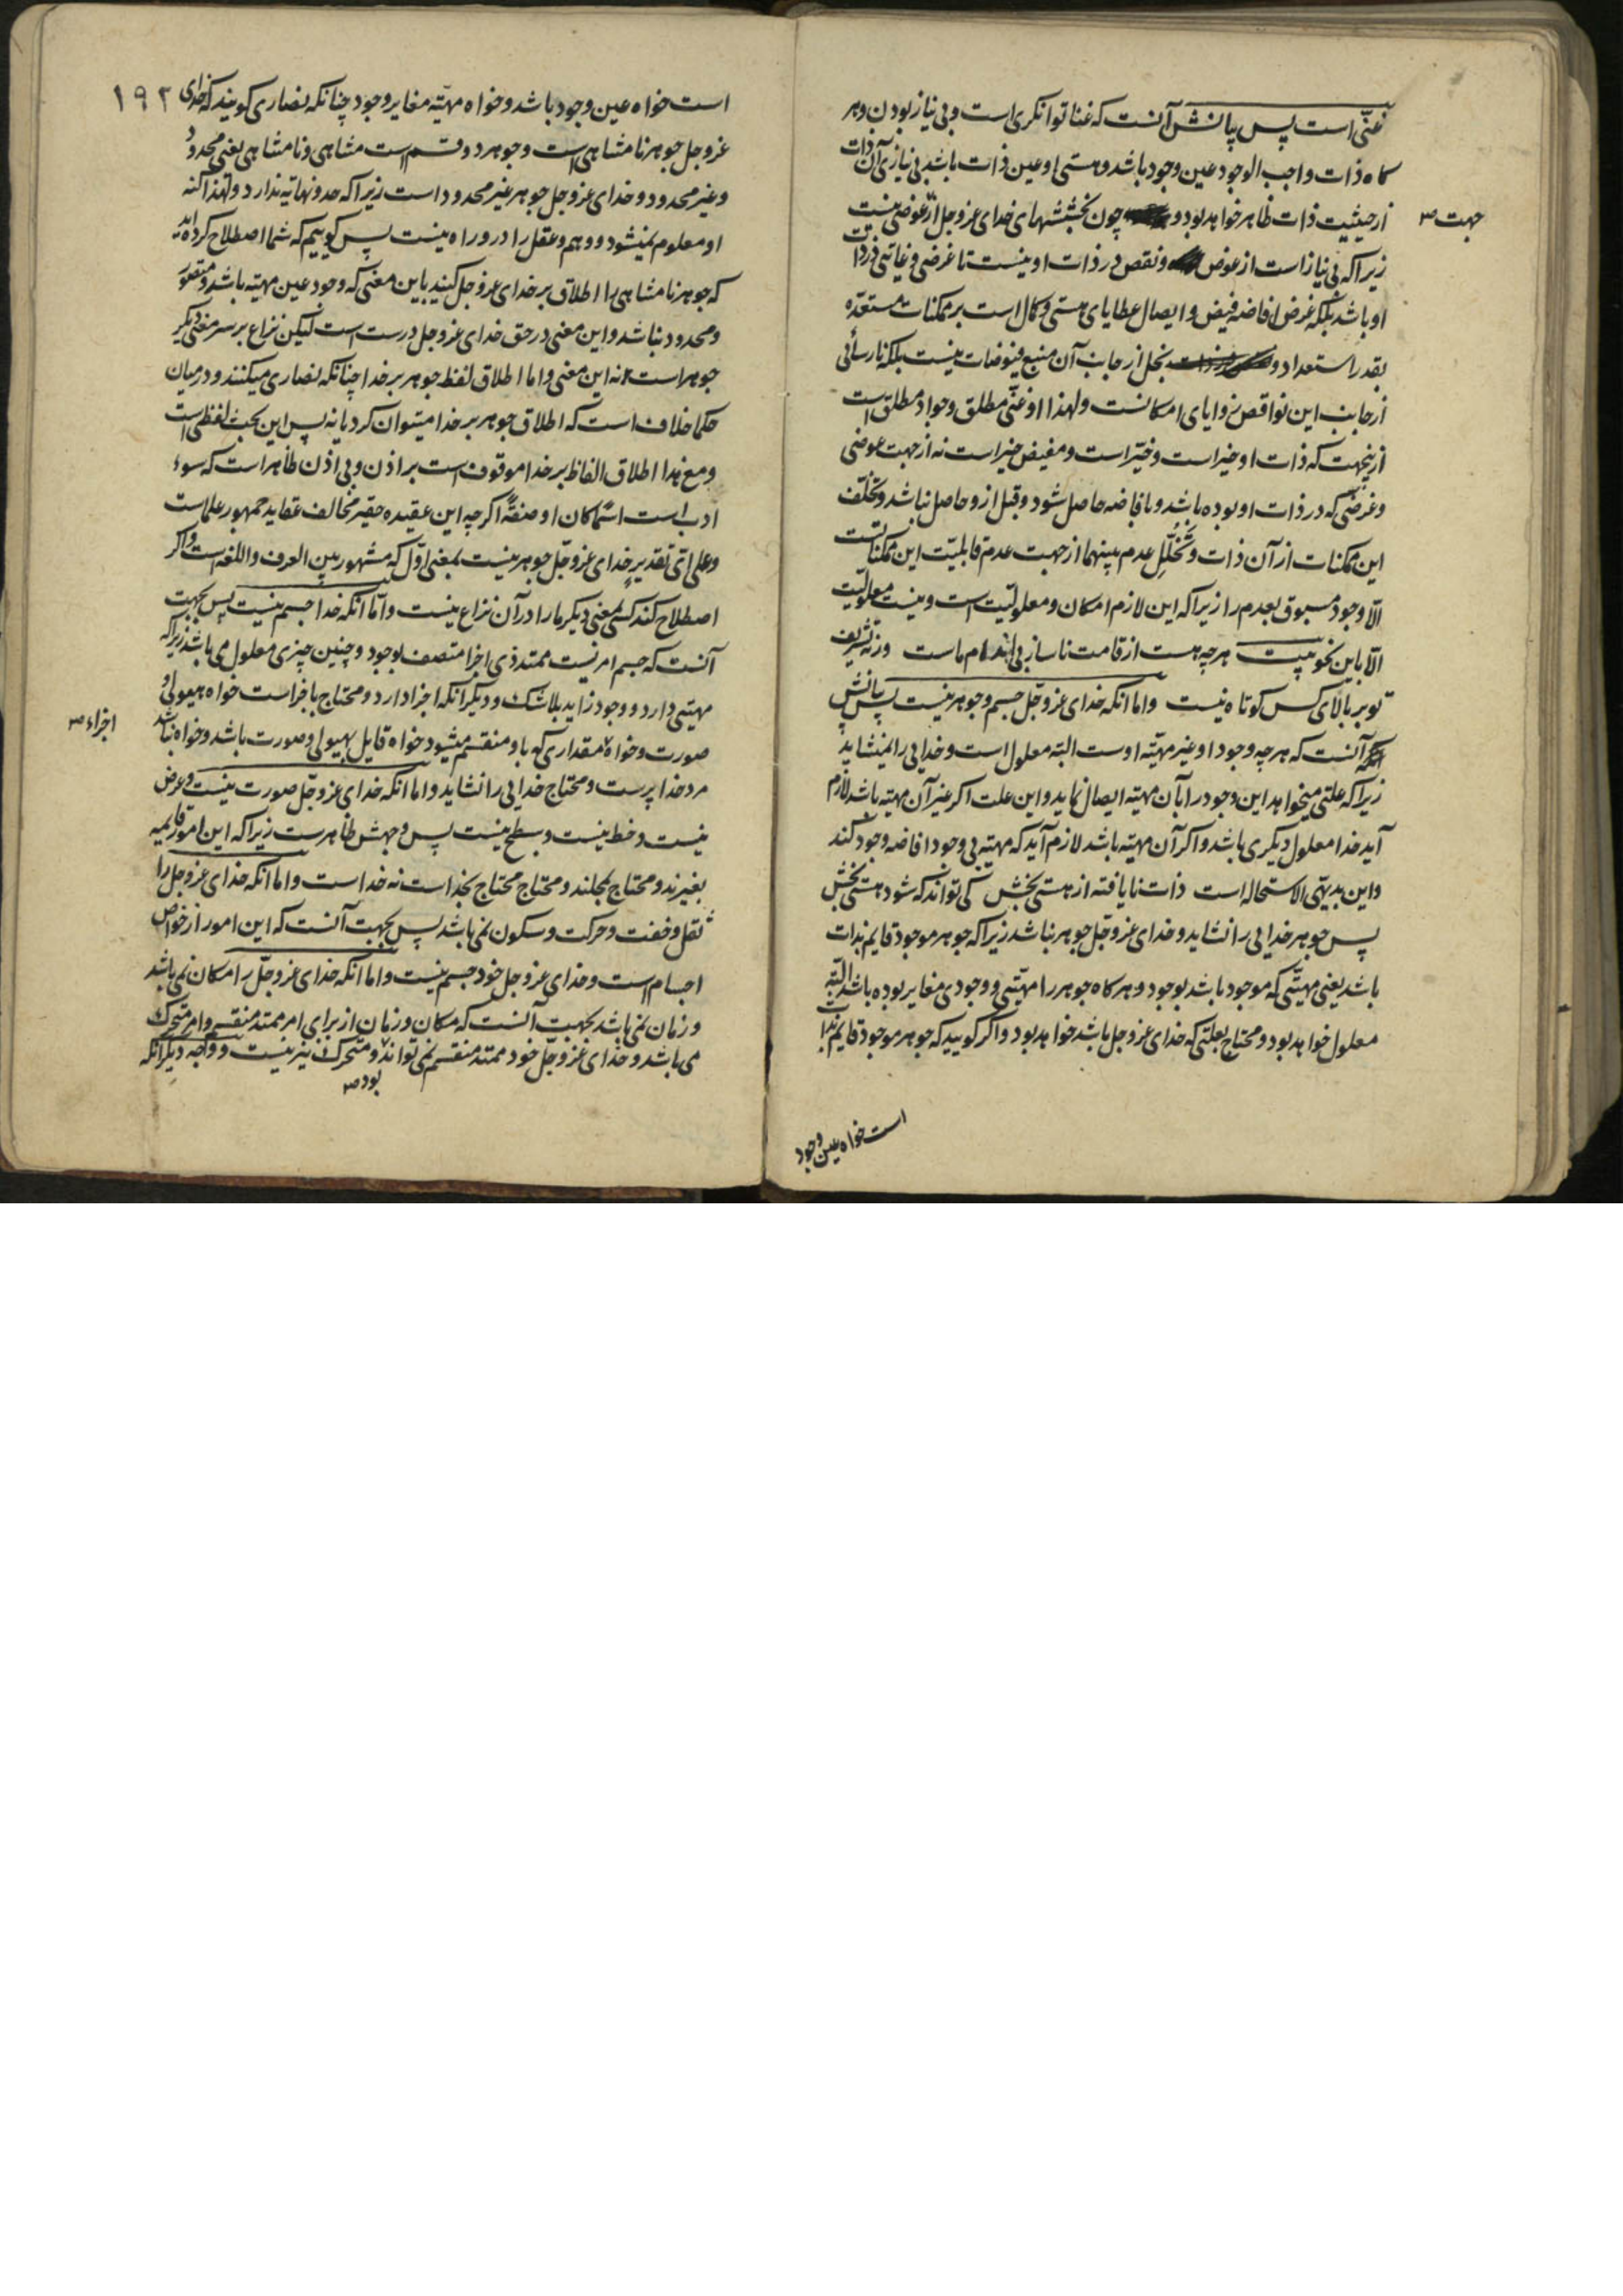 غنی است پس بیانش آنست که غنا توانکری است و بی نیاز بودن و هر
کاه ذات واجب الوجود عین وجود باشد و هستی او عین ذات باشد بی نیازی آن ذات
از حیثیت ذات ظاهر خواهد بود و چون بخششهای خدای عز و جل از عوضی نیست
جهت
زیرا که بی نیاز است از عوض و نقص در ذات او نیست تا غرضی و غایتی در ذات
او باشد بلکه غرض افاضه فیض و ایصال عطایای هستی و کمال است بر ممکنات مستعده
بقدر استعداد و بخل از جانب آن منبع فیوضات نیست بلکه نارسائی
از جانب این نواقص زوایای امکانست و لهذا او غنی مطلق و جواد مطلق است
ازینجهت که ذات او خیر است و خیّر است و مفیض خیر است نه از جهت عوضی
و غرضی که در ذات او بوده باشد و بافاضه حاصل شود و قبل ازو حاصل نباشد و تخلف
این ممکنات از آن ذات و تخلّل عدم بینهما از جهت عدم قابلیت این ممکناتست
الّا وجود مسبوق بعدم را زیرا که این لازم امکان و معلولیت است و نیست معلولیت
الّا باین نحو بیت هرچه هست از قامت ناساز بی اندام ماست ورنه تشریف
تو بر بالای کس کوتاه نیست و اما انکه خدای عز و جل جسم و جوهر نیست پس بیانش
آنست که هرچه وجود او غیر مهیّه اوست البته معلول است و خدایی را نمیشاید
زیرا که علتی میخواهد این وجود را بآن مهیّه ایصال نماید و این علت اکر غیر آن مهیّه باشد لازم
آید خدا معلول دیکری باشد و اکر آن مهیّه باشد لازم آید که مهیّه بی وجود افاضه وجود کند
و این بدیهی الاستحاله است ذات نایافته از هستی بخش کی تواند که شود هستی بخش
پس جوهر خدایی را نشاید و خدای عز و جل جوهر نباشد زیرا که جوهر موجود قایم بذات
باشد یعنی مهیّتی که موجود باشد بوجود و هرکاه جوهر را مهیّتی و وجودی مغایر بوده باشد البته
معلول خواهد بود و محتاج بعلتی که خدای عز و جل باشد خواهد بود و اکر کویید که جوهر موجود قایم بذات
است خواه عین وجود
۱۹۲
است خواه عین وجود باشد و خواه مهیّه مغایر وجود چنانکه نصاری کویند که خدای
عز و جل جوهر نامتناهی است و جوهر دو قسم است متناهی و نامتناهی یعنی محدود
و غیر محدود و خدای عز و جل جوهر غیر محدود است زیرا که حد و نهایة ندارد و لهذا کنه
او معلوم نمیشود و وهم و عقل را درو راه نیست پس کوییم که شما اصطلاح کرده اید
که جوهر نامتناهی را اطلاق بر خدای عز و جل کنید باین معنی که وجود عین مهیّه باشد و متصور
و محدود نباشد و این معنی در حق خدای عز و جل درست است لیکن نزاع بر سر معنی دیکر
جوهر است نه این معنی و اما اطلاق لفظ جوهر بر خدا چنانکه نصاری میکنند و درمیان
حکما خلاف است که اطلاق جوهر بر خدا میتوان کرد یا نه پس این بحث لفظی است
و مع هذا اطلاق الفاظ بر خدا موقوف است بر اذن و بی اذن ظاهر است که سوء
ادب است اسما کان او صفةً اکر چه این عقیده حقیر مخالف عقاید جمهور علماست
و علی ای تقدیر خدای عز و جل جوهر نیست بمعنی اول که مشهور بین العرف و اللغه است و اکر
اصطلاح کند کسی بمعنی دیکر ما را در آن نزاع نیست و امّا انکه خدا جسم نیست پس بجهت
آنست که جسم امریست ممتد ذی اجزا متصف بوجود و چنین چیزی معلول می باشد زیرا که
مهیتی دارد و وجود زاید بلا شک و دیکر انکه اجزا دارد و محتاج باجزا است خواه هیولی و
صورت و خواه مقداری که باو منقسم میشود خواه قایل بهیولی و صورت باشد و خواه نباشد
اجزاء
مرد خدا پرست و محتاج خدایی را نشاید و اما انکه خدای عز و جل صورت نیست و عرض
نیست و خط نیست و سطح نیست پس وجهش ظاهر است زیرا که این امور قایم
بغیرند و محتاج بمحلند و محتاج محتاج بخداست نه خداست و اما انکه خدای عز و جل را
ثقل و خفت و حرکت و سکون نمی باشد پس بجهت آنست که این امور از خواص
اجسام است و خدای عز و جل خود جسم نیست و اما انکه خدای عز و جل را مکان نمی باشد
و زمان نمی باشد بجهت آنست که مکان و زمان از برای امر ممتد منقسم و امر متحرک
می باشد و خدای عز و جل خود ممتد منقسم نمی تواند و متحرک نیز نیست و وجه دیکر انکه
بود